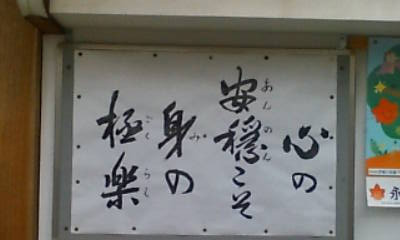 心の
安穏こそ
あんのん
身の
み
極楽
ごくらく
永